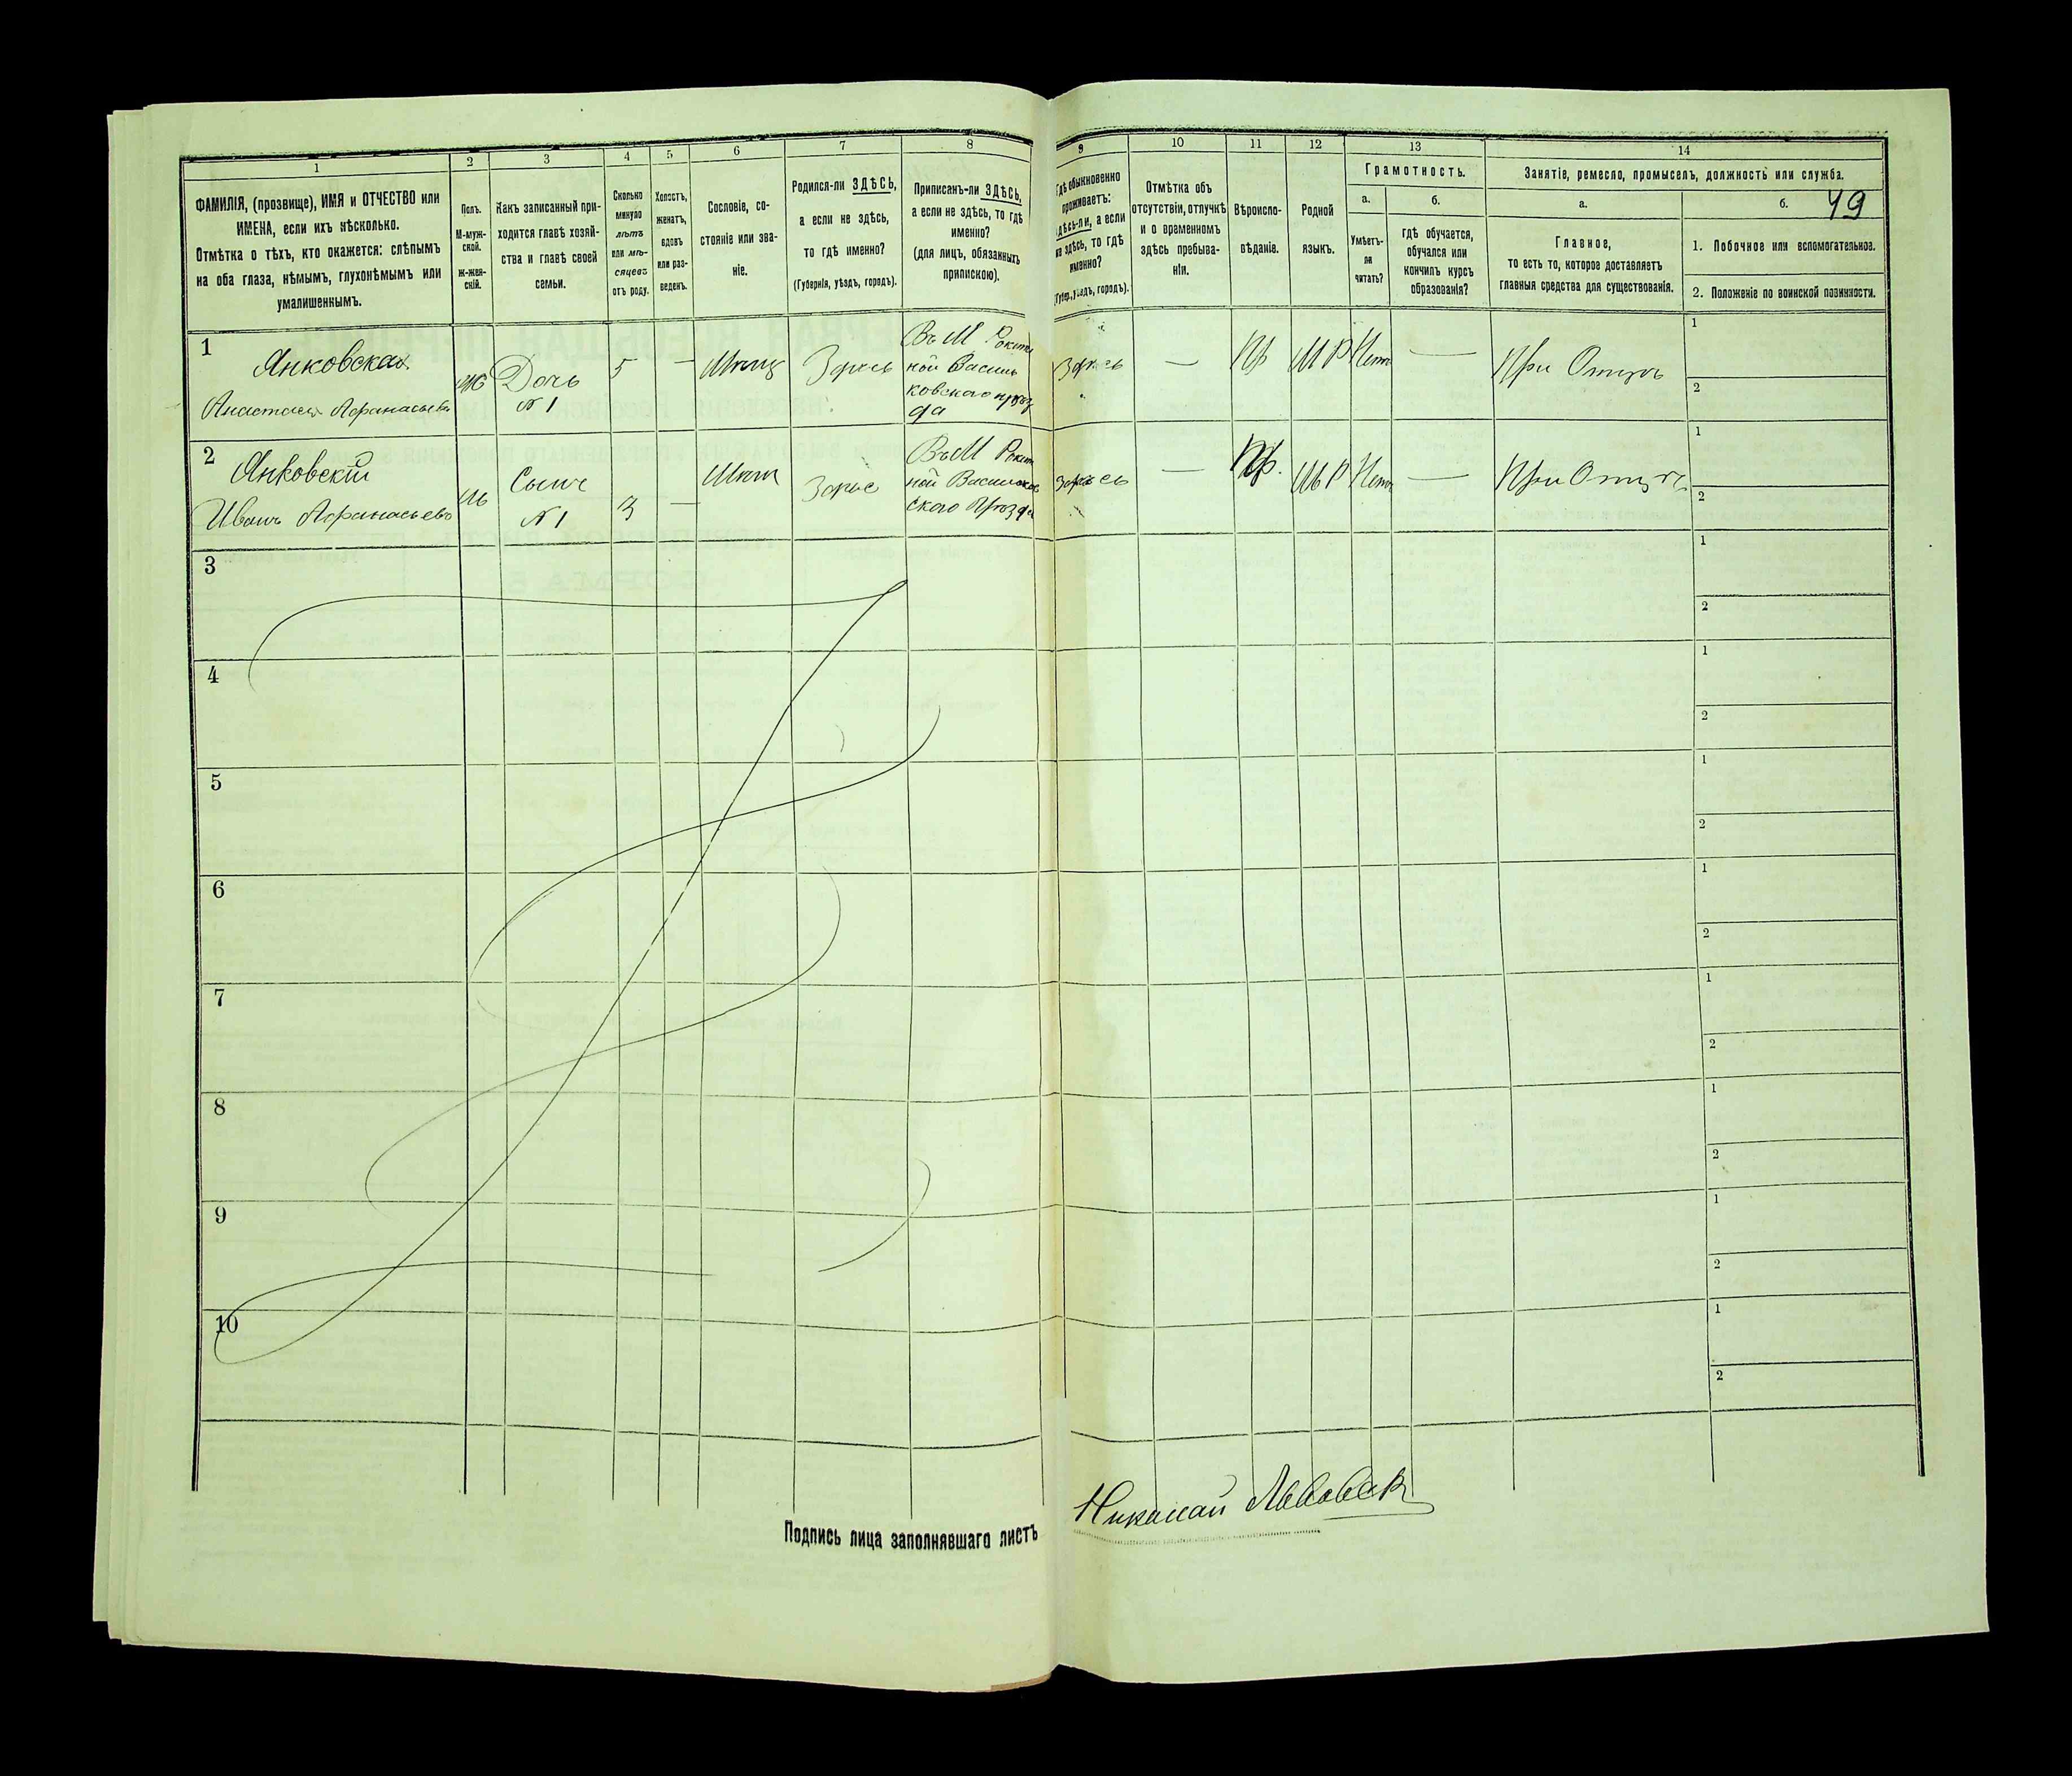 1 2 3 4 5 6 7 8 9 10 11 12 13 14
ФАМИЛІЯ, (прозвище), ИМЯ и ОТЧЕСТВО или
ИМЕНА, если ихъ нѣсколько.
Отмѣтка о тѣхъ, кто окажется: слѣпымъ
на оба глаза, нѣмымъ, глухонѣмымъ или
умалишеннымъ.
Полъ.
М-муж-
ской.
Ж-жен-
скій.
Какъ записанный при-
ходится главѣ хозяй-
ства и главѣ своей
семьи.
Сколько
минуло
лѣтъ
или мѣ-
сяцевъ
отъ роду.
Холостъ,
женатъ,
вдовъ
или раз-
веденъ.
Сословіе, со-
стояніе или зва-
ніе.
Родился-ли ЗДѢСЬ,
а если не здѣсь,
то гдѣ именно?
(Губернія, уѣздъ, городъ).
Приписанъ-ли ЗДѢСЬ,
а если не здѣсь, то гдѣ
именно?
(для лицъ, обязанныхъ
припискою).
Гдѣ обыкновенно
проживаетъ:
здѣсь-ли, а если
не здѣсь, то гдѣ
именно?
(Губер., уѣздъ, городъ).
Отмѣтка объ
отсутствіи, отлучкѣ
и о временномъ
здѣсь пребыва-
ніи.
Вѣроиспо-
вѣданіе.
Родной
языкъ.
Грамотность.
а.
Умѣетъ-
ли
читать?
б.
гдѣ обучается,
обучался или
кончилъ курсъ
образованія?
Занятіе, ремесло, промыселъ, должность или служба.
а.
Главное,
то есть то, которое доставляетъ
главныя средства для существованія.
б.
49
1. Побочное или вспомогательное.
2. Положеніе по воинской повинности.
1
Янковская
Анастасія Афанасьева
ж
Дочь
№ 1
5
—
Мѣщ
Здѣсь
Въ М Рокит
ной Василь
ковскаго уѣз
да
Здѣсь
—
Пр
М Р
Нетъ
—
При Отцѣ
1
2
2
Янковскій
Иванъ Афанасьевъ
м
Сынъ
№ 1
3
—
Здѣсь
Въ М Рокит
ной Васильков
скаго Уѣзда
Здѣсь
—
Пр.
М Р
Нетъ
—
При Отцѣ
1
2
3
1
2
4
1
2
5
1
2
6
1
2
7
1
2
8
1
2
9
1
2
10
1
2
Подпись лица заполнявшаго листъ
Николай